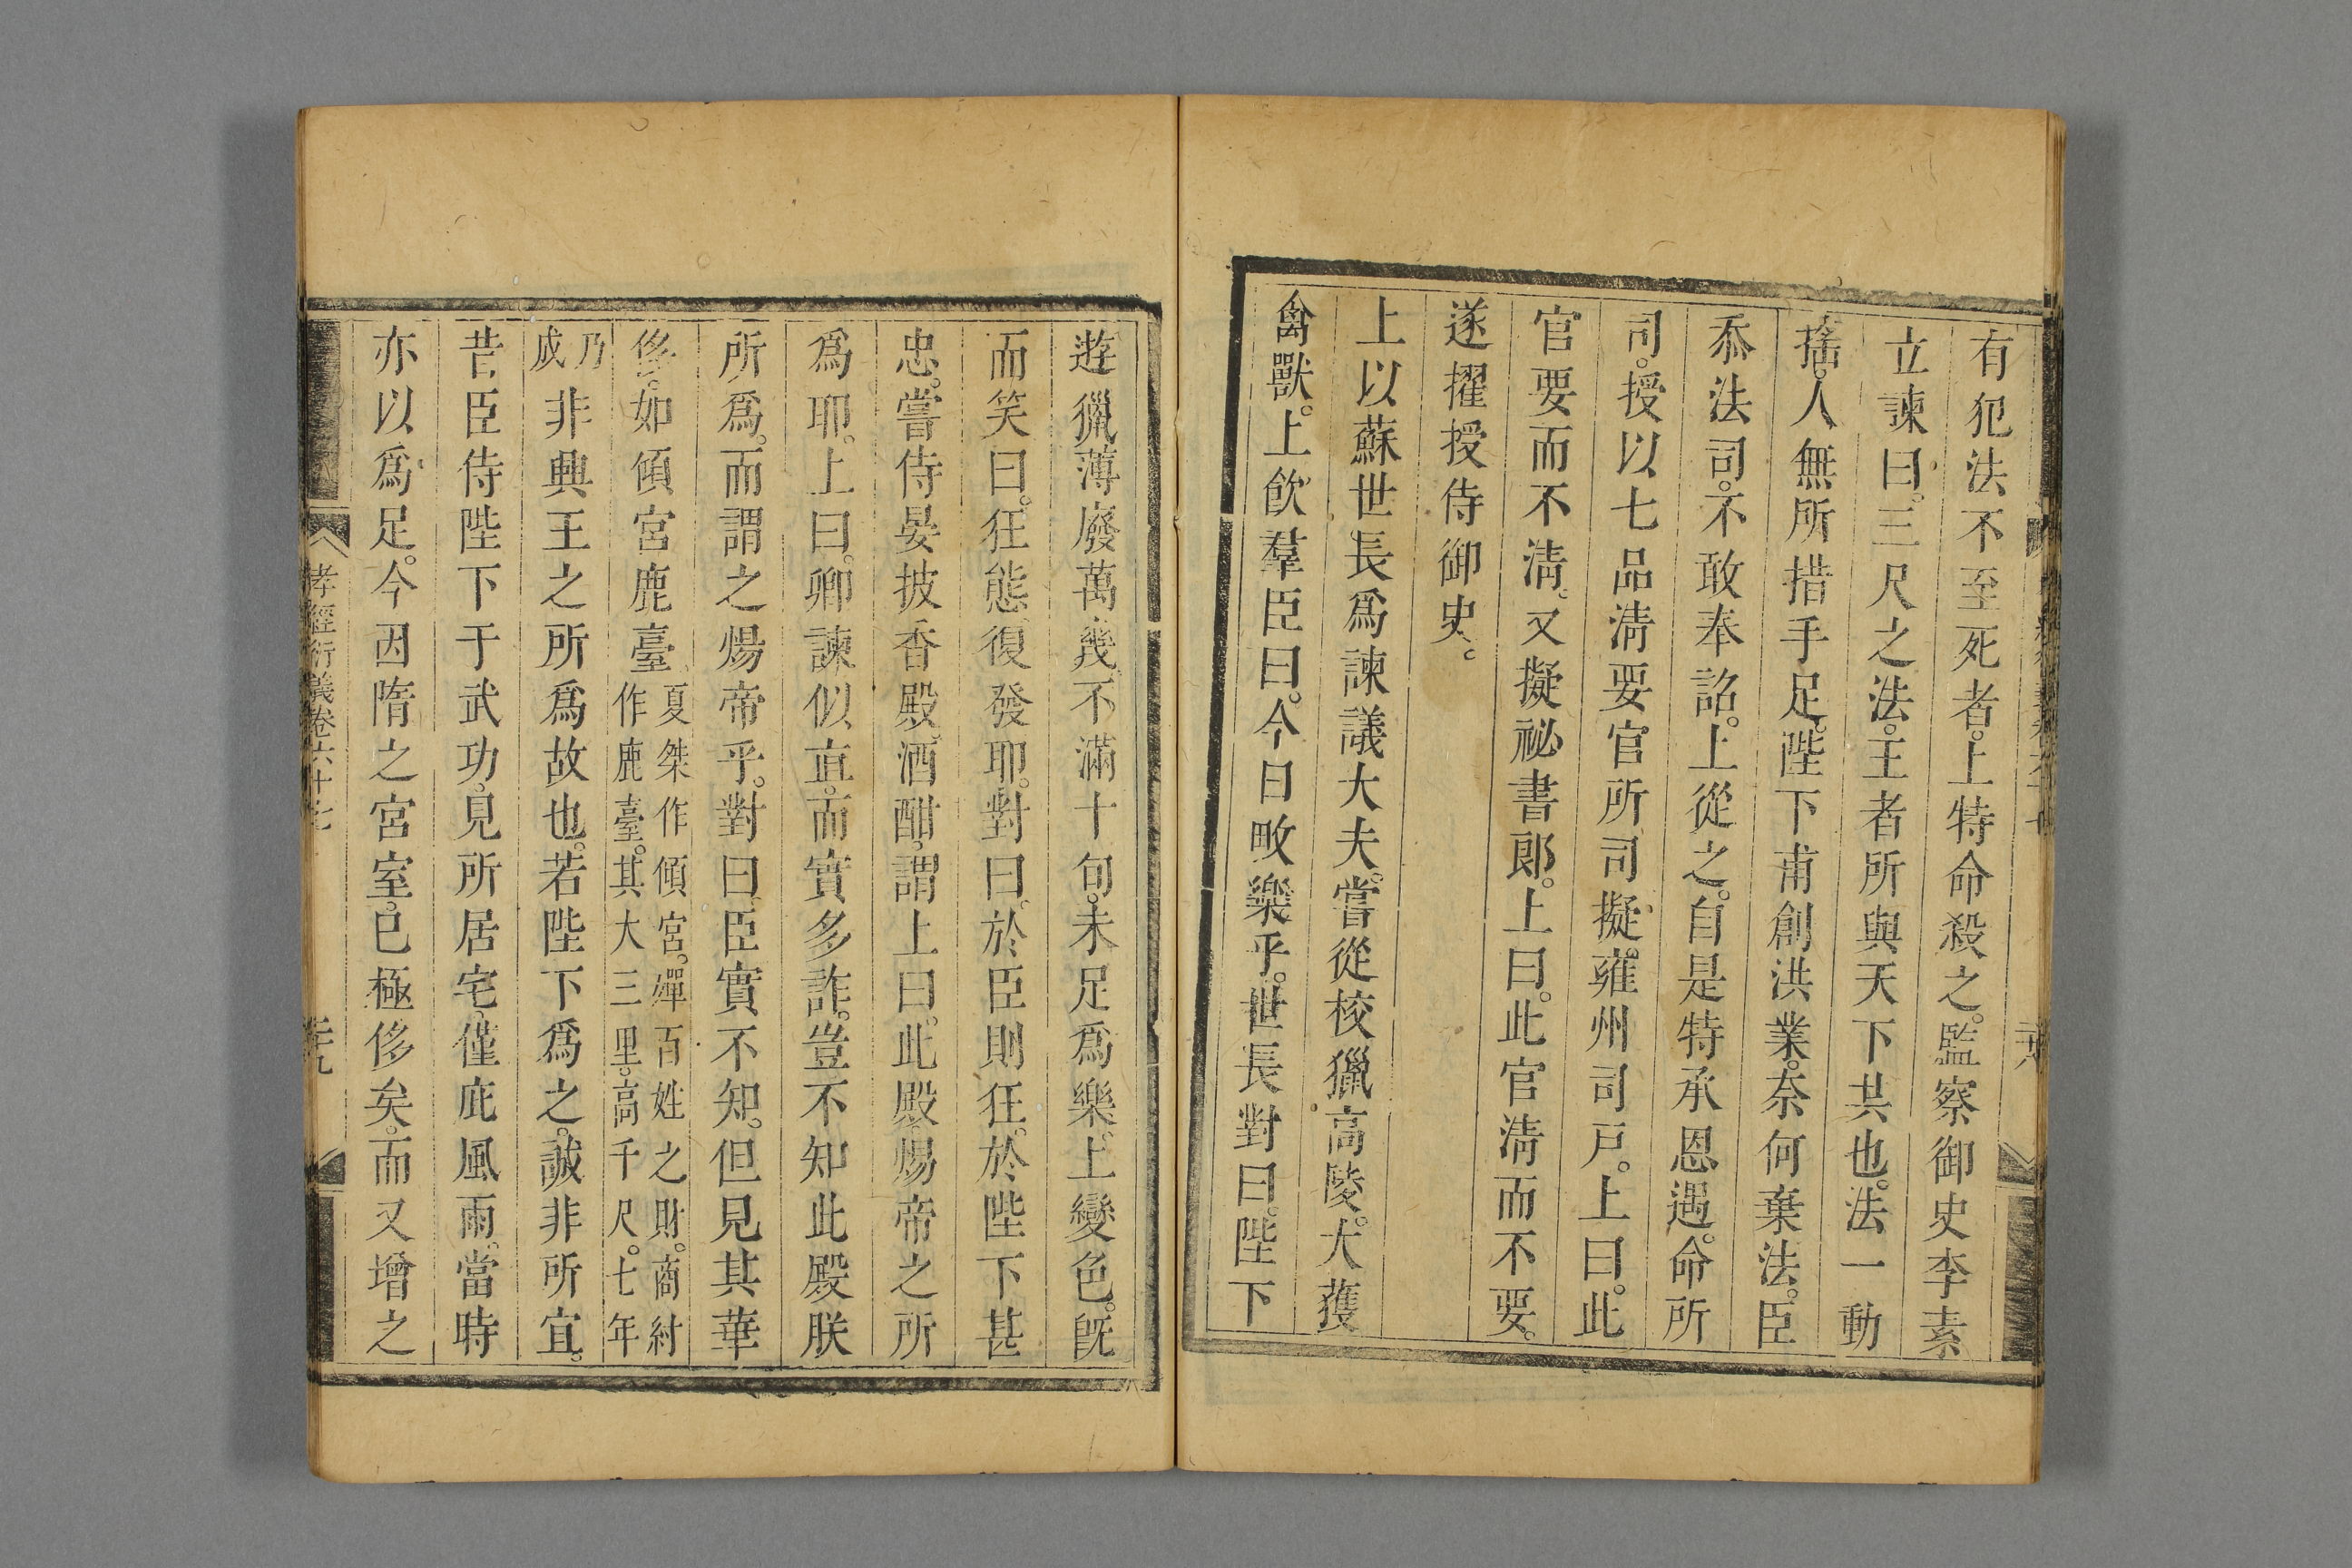 有犯法不至死者。上特命殺之。監察御史李素
立諫曰。三尺之法。王者所與天下共也。法一動
搖。人無所措手足。陛下甫創洪業。奈何棄法。臣
忝法司。不敢奉詔。上從之。自是特承恩遇。命所
司。授以七品淸要官。所司擬雍州司戸。上曰。此
官要而不淸。又擬祕書郎。上曰。此官淸而不要。
遂擢授侍御史。
上以蘇世長爲諫議大夫。嘗從校獵高陵。大獲
禽獸。上飮羣臣曰。今日畋樂乎。世長對曰。陛下
遊獵薄廢萬幾。不滿十旬。未足爲樂。上變色。旣
而笑曰。狂態復發耶。對曰。於臣則狂。於陛下甚
忠。嘗侍晏披香殿。酒酣。謂上曰。此殿煬帝之所
爲耶。上曰。卿諫似直。而實多詐。豈不知此殿朕
所爲。而謂之煬帝乎。對曰。臣實不知。但見其華
侈。如傾宮鹿臺夏桀作傾宮。殫百姓之財。商紂作鹿臺。其大三里。高千尺。七年
乃成非興王之所爲故也。若陛下爲之。誠非所宜。
昔臣侍陛下于武功。見所居宅。僅庇風雨。當時
亦以爲足。今因隋之宮室。已極侈矣。而又增之
孝經衍義卷六十七